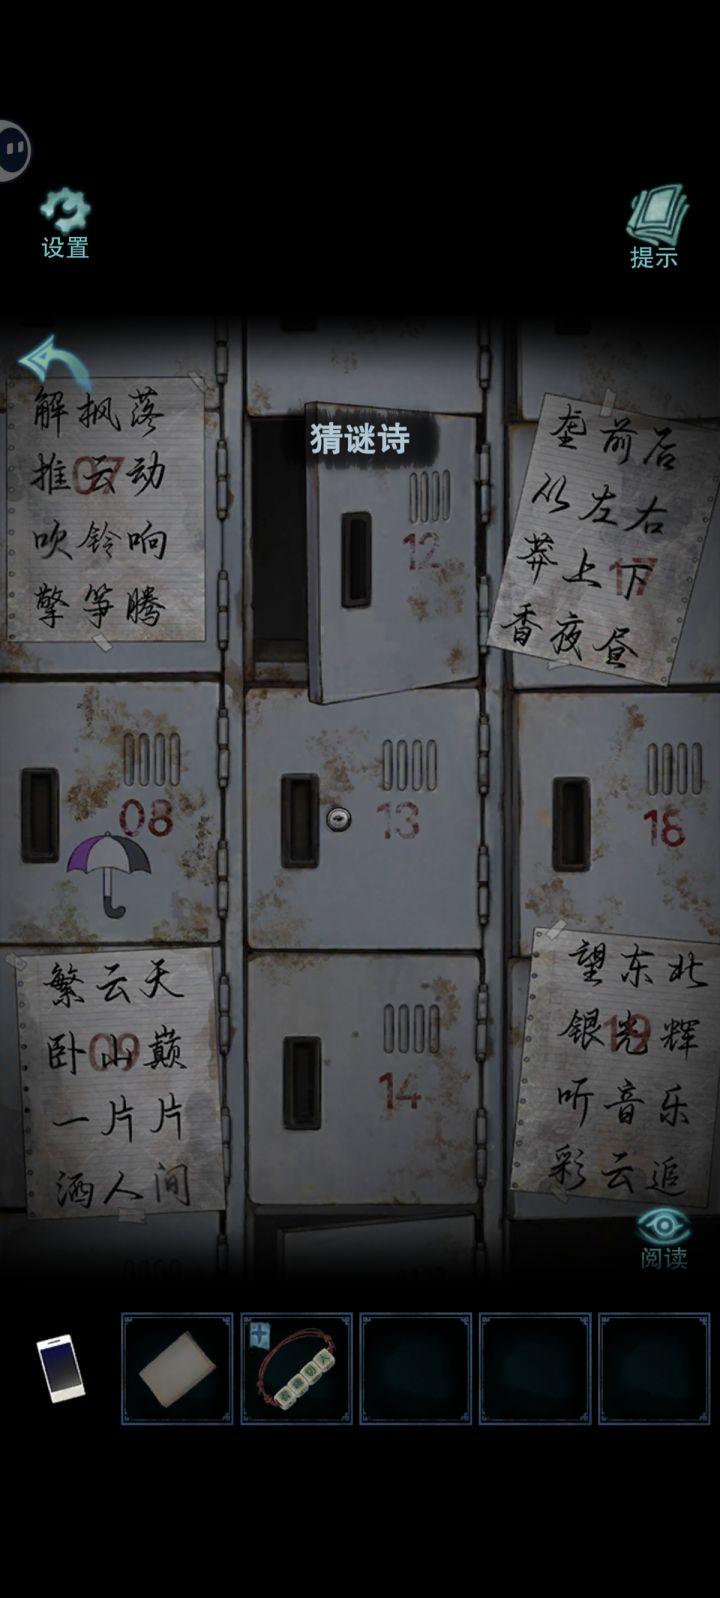 设置
提示
解枫落
推云动
吹铃响
擎筝腾
07
猜谜诗
12
垄前后
从左右
莽上下
香夜昼
17
08
13
18
繁云天
卧山巅
一片片
洒人间
09
14
望东北
银光辉
听音乐
彩云追
19
阅读